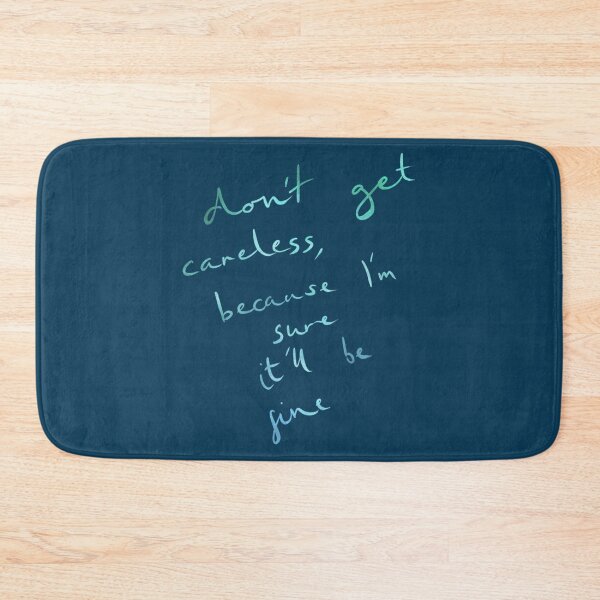 don't get
careless,
because I'm
sure
it'll be
fine